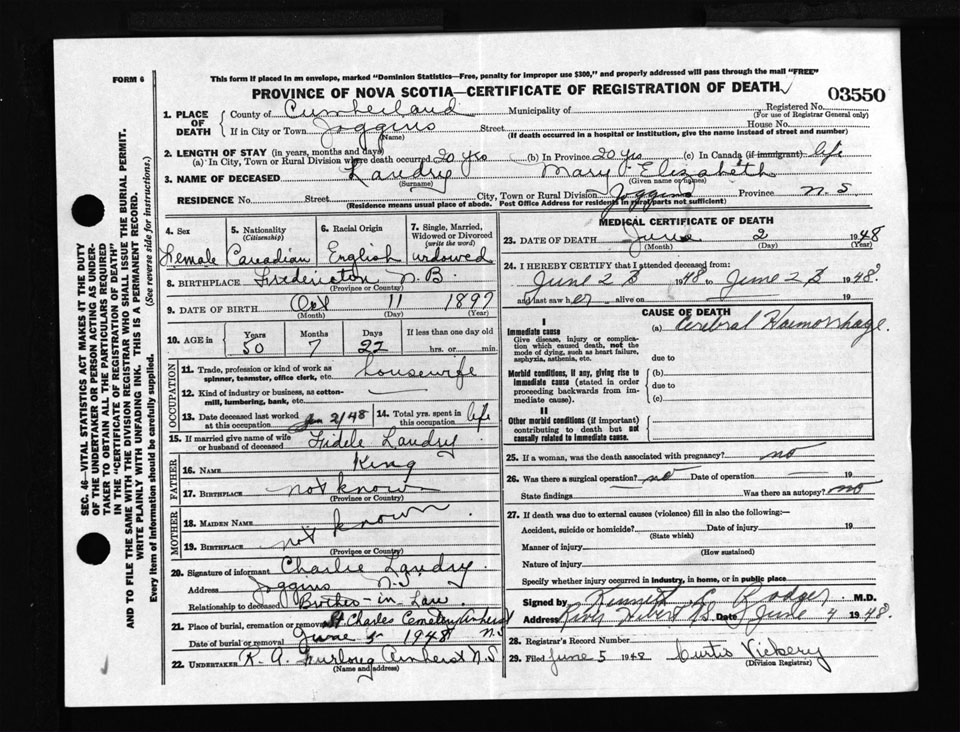 FORM 6
This form if placed in an envelope, marked "Dominion Statistics—Free, penalty for improper use $300," and properly addressed will pass through the mail "FREE"
PROVINCE OF NOVA SCOTIA—CERTIFICATE OF REGISTRATION OF DEATH
03550
SEC. 46—VITAL STATISTICS ACT MAKES IT THE DUTY
OF THE UNDERTAKER OR PERSON ACTING AS UNDER-
TAKER TO OBTAIN ALL THE PARTICULARS REQUIRED
IN THE "CERTIFICATE OF REGISTRATION OF DEATH"
AND TO FILE THE SAME WITH THE DIVISION REGISTRAR WHO SHALL ISSUE THE BURIAL PERMIT.
WRITE PLAINLY WITH UNFADING INK. THIS IS A PERMANENT RECORD.
Every item of Information should be carefully supplied. (See reverse side for instructions.)
1. PLACE OF DEATH
County of Cumberland Municipality of Registered No.
(For use of Registrar General only)
If in City or Town Joggins Street House No.
(Name) (If death occurred in a hospital or institution, give the name instead of street and number)
2. LENGTH OF STAY (in years, months and days)
(a) In City, Town or Rural Division where death occurred 20 yrs (b) In Province 20 yrs (c) In Canada (if immigrant) life
3. NAME OF DECEASED Landry Mary Elizabeth
(Surname) (Given name or names)
RESIDENCE No. Street City, Town or Rural Division Joggins Province N.S
(Residence means usual place of abode. Post Office Address for residents in rural parts not sufficient)
4. Sex
Female
5. Nationality
(Citizenship)
Canadian
6. Racial Origin
English
7. Single, Married,
Widowed or Divorced
(write the word)
widowed
8. BIRTHPLACE Fredericton N.B.
(Province or County)
9. DATE OF BIRTH Oct 11 1897
(Month) (Day) (Year)
10. AGE in
Years Months Days If less than one day old
50 7 22 hrs. or min.
OCCUPATION
11. Trade, profession or kind of work as
spinner, teamster, office clerk, etc. housewife
12. Kind of industry or business, as cotton-
mill, lumbering, bank, etc.
13. Date deceased last worked
at this occupation 2/48
14. Total yrs. spent in
this occupation life
15. If married give name of wife
or husband of deceased Fidele Landry
FATHER
16. Name King
17. Birthplace not known
(Province or Country)
MOTHER
18. Maiden Name
not known
19. Birthplace
(Province or Country)
20. Signature of informant Charlie Landry
Address Joggins N.S
Relationship to deceased Brother-in-Law
21. Place of burial, cremation or removal St Charles Cemetery Amherst
Date of burial or removal June 5 1948 N.S
22. UNDERTAKER K. A. Furlong Amherst N.S
(Name and address)
MEDICAL CERTIFICATE OF DEATH
23. DATE OF DEATH June 2 1948
(Month) (Day) (Year)
24. I HEREBY CERTIFY that I attended deceased from:
June 2 1948 to June 2 1948
and last saw her alive on 19
CAUSE OF DEATH
I
Immediate cause
Give disease, injury or complica-
tion which caused death, not the
mode of dying, such as heart failure,
asphyxia, asthenia, etc.
(a) Cerebral Haemorrhage.
due to
Morbid conditions, if any, giving rise to
immediate cause (stated in order
proceeding backwards from im-
mediate cause).
(b)
due to
(c)
II
Other morbid conditions (if important)
contributing to death but not
causally related to immediate cause.
25. If a woman, was the death associated with pregnancy? no
26. Was there a surgical operation? no Date of operation 19
State findings Was there an autopsy? no
27. If death was due to external causes (violence) fill in also the following:—
Accident, suicide or homicide? Date of injury 19
(State which)
Manner of injury
(How sustained)
Nature of injury
Specify whether injury occurred in industry, in home, or in public place
Signed by Kenneth C Rodger M.D.
Address River Hebert N.S. Date June 4 1948
28. Registrar's Record Number
29. Filed June 5 1948 Curtis Vickery
(Division Registrar)